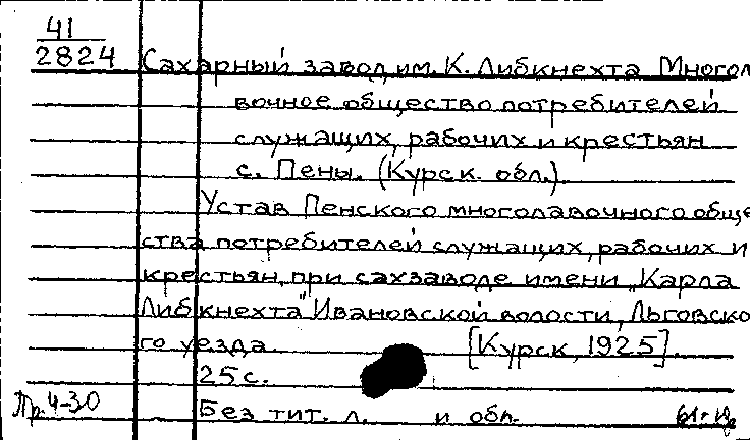 41
2824 Сахарный завод им. К. Либкнехта Многола
вочное общество потребителей
служащих, рабочих и крестьян
с. Пены. (Курск. обл.).
Устав Пенского многолавочного обще
ства потребителей служащих, рабочих и
крестьян, при сахзаводе имени „Карла
Либкнехта" Ивановской волости, Льговско
го уезда. [Курск, 1925].
25 с.
Пр. 4-30 Без тит. л. и обл.